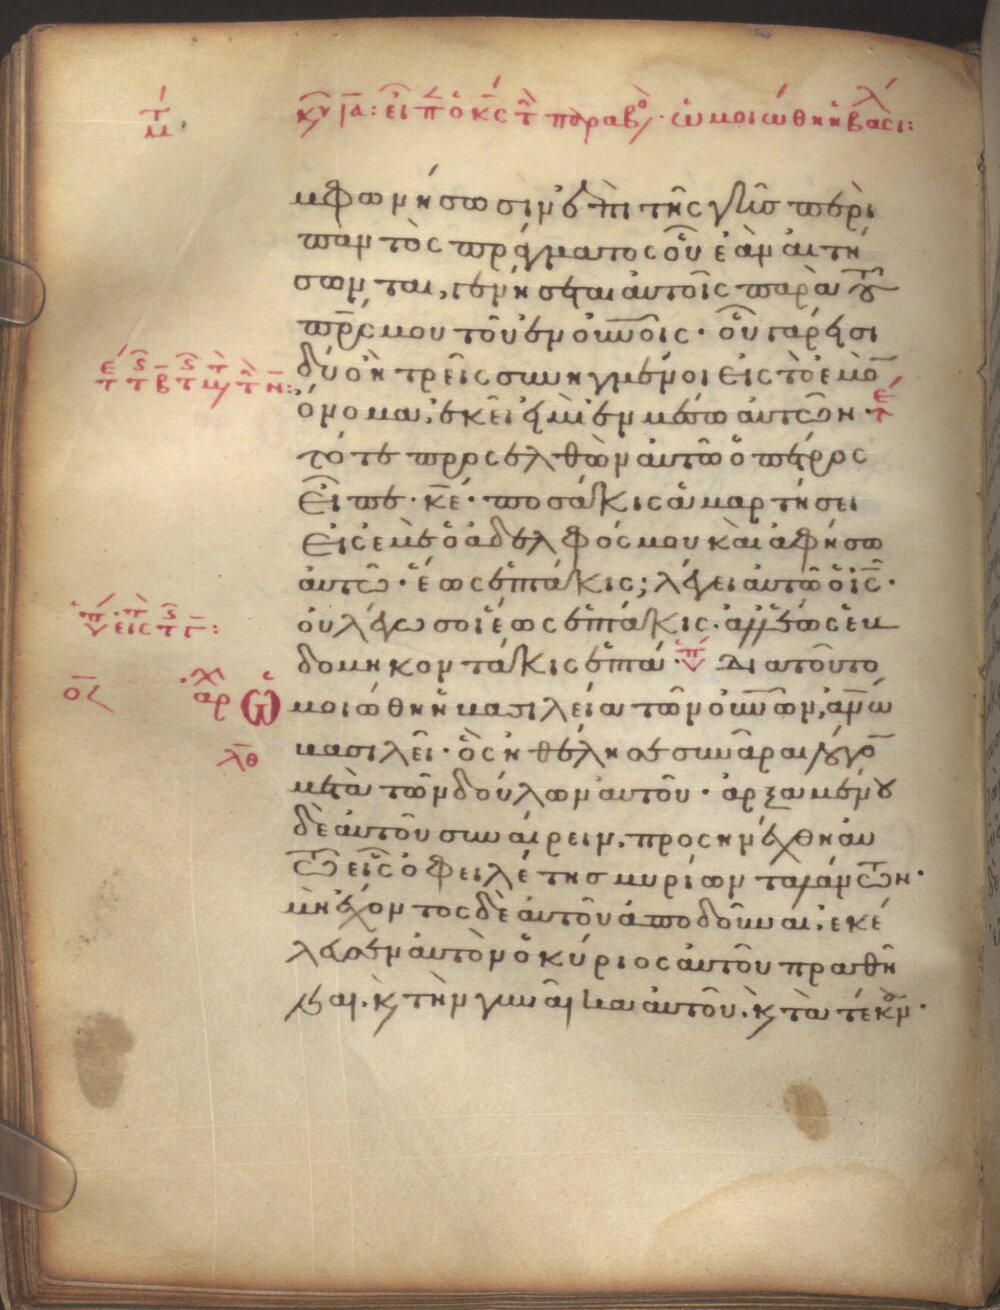 κυ ια: ει π ο κς τ παραβ ὡμοιώθη ἡ βασιλ:
μφωνήσωσιν ἐπὶ τῆς γῆς περὶ
παντὸς πράγματος οὗ ἐὰν αἰτή
σωνται, γενήσεται αὐτοῖς παρὰ τοῦ
πρς μου τοῦ ἐν οὐνοῖς· οὗ γάρ εἰσι
δύο ἢ τρεῖς συνηγμένοι εἰς τὸ ἐμὸ
ὄνομα, ἐκεῖ εἰμὶ ἐν μέσω αὐτῶν·
τότε προσελθὼν αὐτῶ ὁ πέτρος
εἶπε· κε· ποσάκις ἁμαρτήσει
εἰς ἐμὲ ὁ ἀδελφός μου καὶ ἀφήσω
αὐτῶ· ἕως ἑπτάκις; λέγει αὐτῶ ὁ ις·
οὐ λέγω σοι ἕως ἑπτάκις· ἀλλ' ἕως ἑβ
δομηκοντάκις ἑπτά· Διατοῦτο
Ὡμοιώθη ἡ βασιλεία τῶν οὐνῶν, ανω
βασιλεῖ· ὃς ἠθέλησε συνᾶραι λόγο
μετὰ τῶν δούλων αὐτοῦ· ἀρξαμένου
δὲ αὐτοῦ συναίρειν, προσηνέχθη αὐ
τῶ εἷς ὀφειλέτης μυρίων ταλάντων·
μὴ ἔχοντος δὲ αὐτοῦ ἀποδοῦναι, ἐκέ
λευσεν αὐτὸν ὁ κύριος αὐτοῦ πραθῆ
ναι, κ τὴν γυναῖκα αὐτοῦ, κ τὰ τέκν·